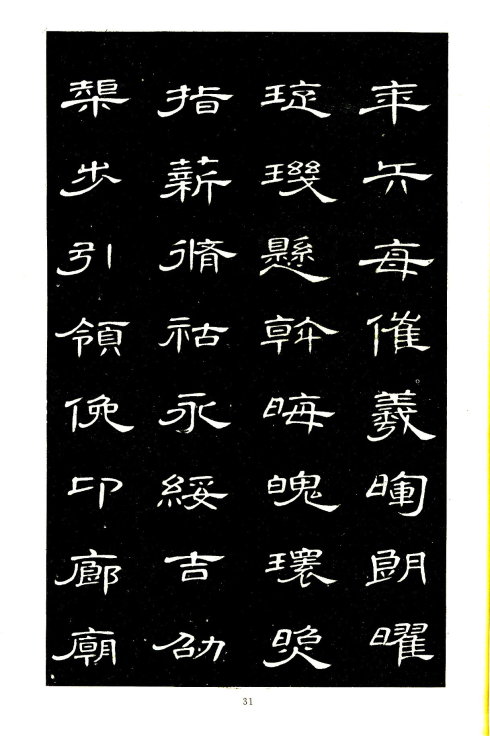 年矢每催羲暉朗曜
琁璣懸斡晦魄環照
指薪脩祜永綏吉劭
榘步引領俛卬廊廟
31